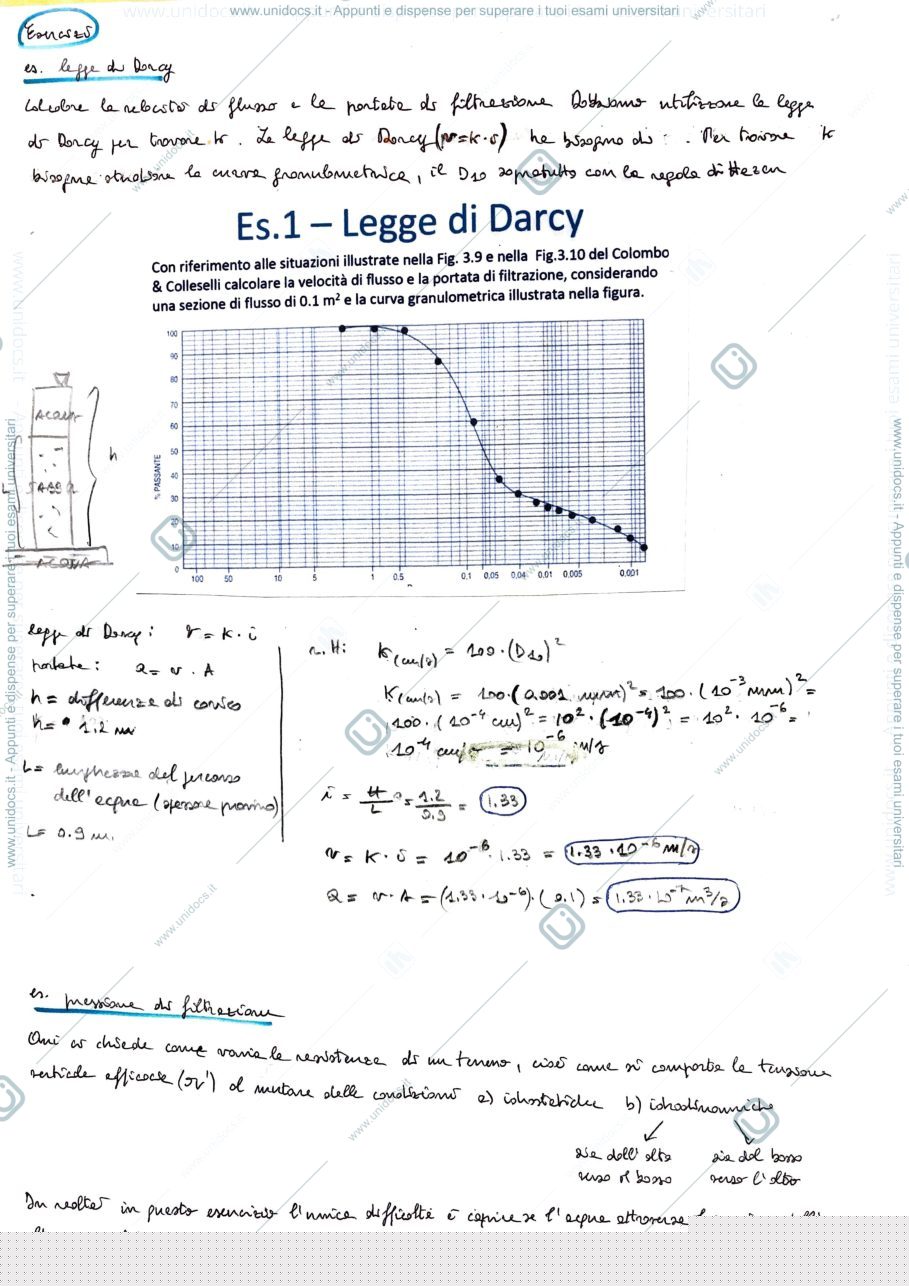 www.unidocs.it - Appunti e dispense per superare i tuoi esami universitari
Esercizi
es. legge di Darcy
Calcolare la velocità di flusso e la portata di filtrazione Dobbiamo utilizzare la legge
di Darcy per trovare k. La legge di Darcy (v=k·i) ha bisogno di: . Per trovare k
bisogna studiare la curva granulometrica, il D10 sopratutto con la regola di Hazen
Es.1 – Legge di Darcy
Con riferimento alle situazioni illustrate nella Fig. 3.9 e nella Fig.3.10 del Colombo
& Colleselli calcolare la velocità di flusso e la portata di filtrazione, considerando
una sezione di flusso di 0.1 m² e la curva granulometrica illustrata nella figura.
% PASSANTE
100
90
80
70
60
50
40
30
20
10
0
100 50 10 5 1 0.5 0.1 0,05 0.04 0.01 0.005 0.001
ACQUA
h
L
ACQUA
legge di Darcy: v = k · i
portata: Q = v · A
h = differenza di carico
h = 1.2 m
L = lunghezza del percorso
dell'acqua (spessore provino)
L = 0.9 m.
r. H: K(cm/s) = 100 · (D10)²
K(cm/s) = 100 · (0.001 mm)² = 100 · (10⁻³ mm)² =
100 · (10⁻⁴ cm)² = 10² · (10⁻⁴)² = 10² · 10⁻⁶ =
10⁻⁴ cm/s = 10⁻⁶ m/s
i = H/L = 1.2/0.9 = 1.33
v = k · i = 10⁻⁶ · 1.33 = 1.33 · 10⁻⁶ m/s
Q = v · A = (1.33 · 10⁻⁶) · (0.1) = 1.33 · 10⁻⁷ m³/s
es. pressione di filtrazione
Qui ci chiede come varia la resistenza di un terreno, cioè come si comporta la tensione
verticale efficace (σv') al mutare delle condizioni a) idrostatiche b) idrodinamiche
sia dall'alto
verso il basso
sia dal basso
verso l'alto
In realtà in questo esercizio l'unica difficoltà è capire se l'acqua attraversa